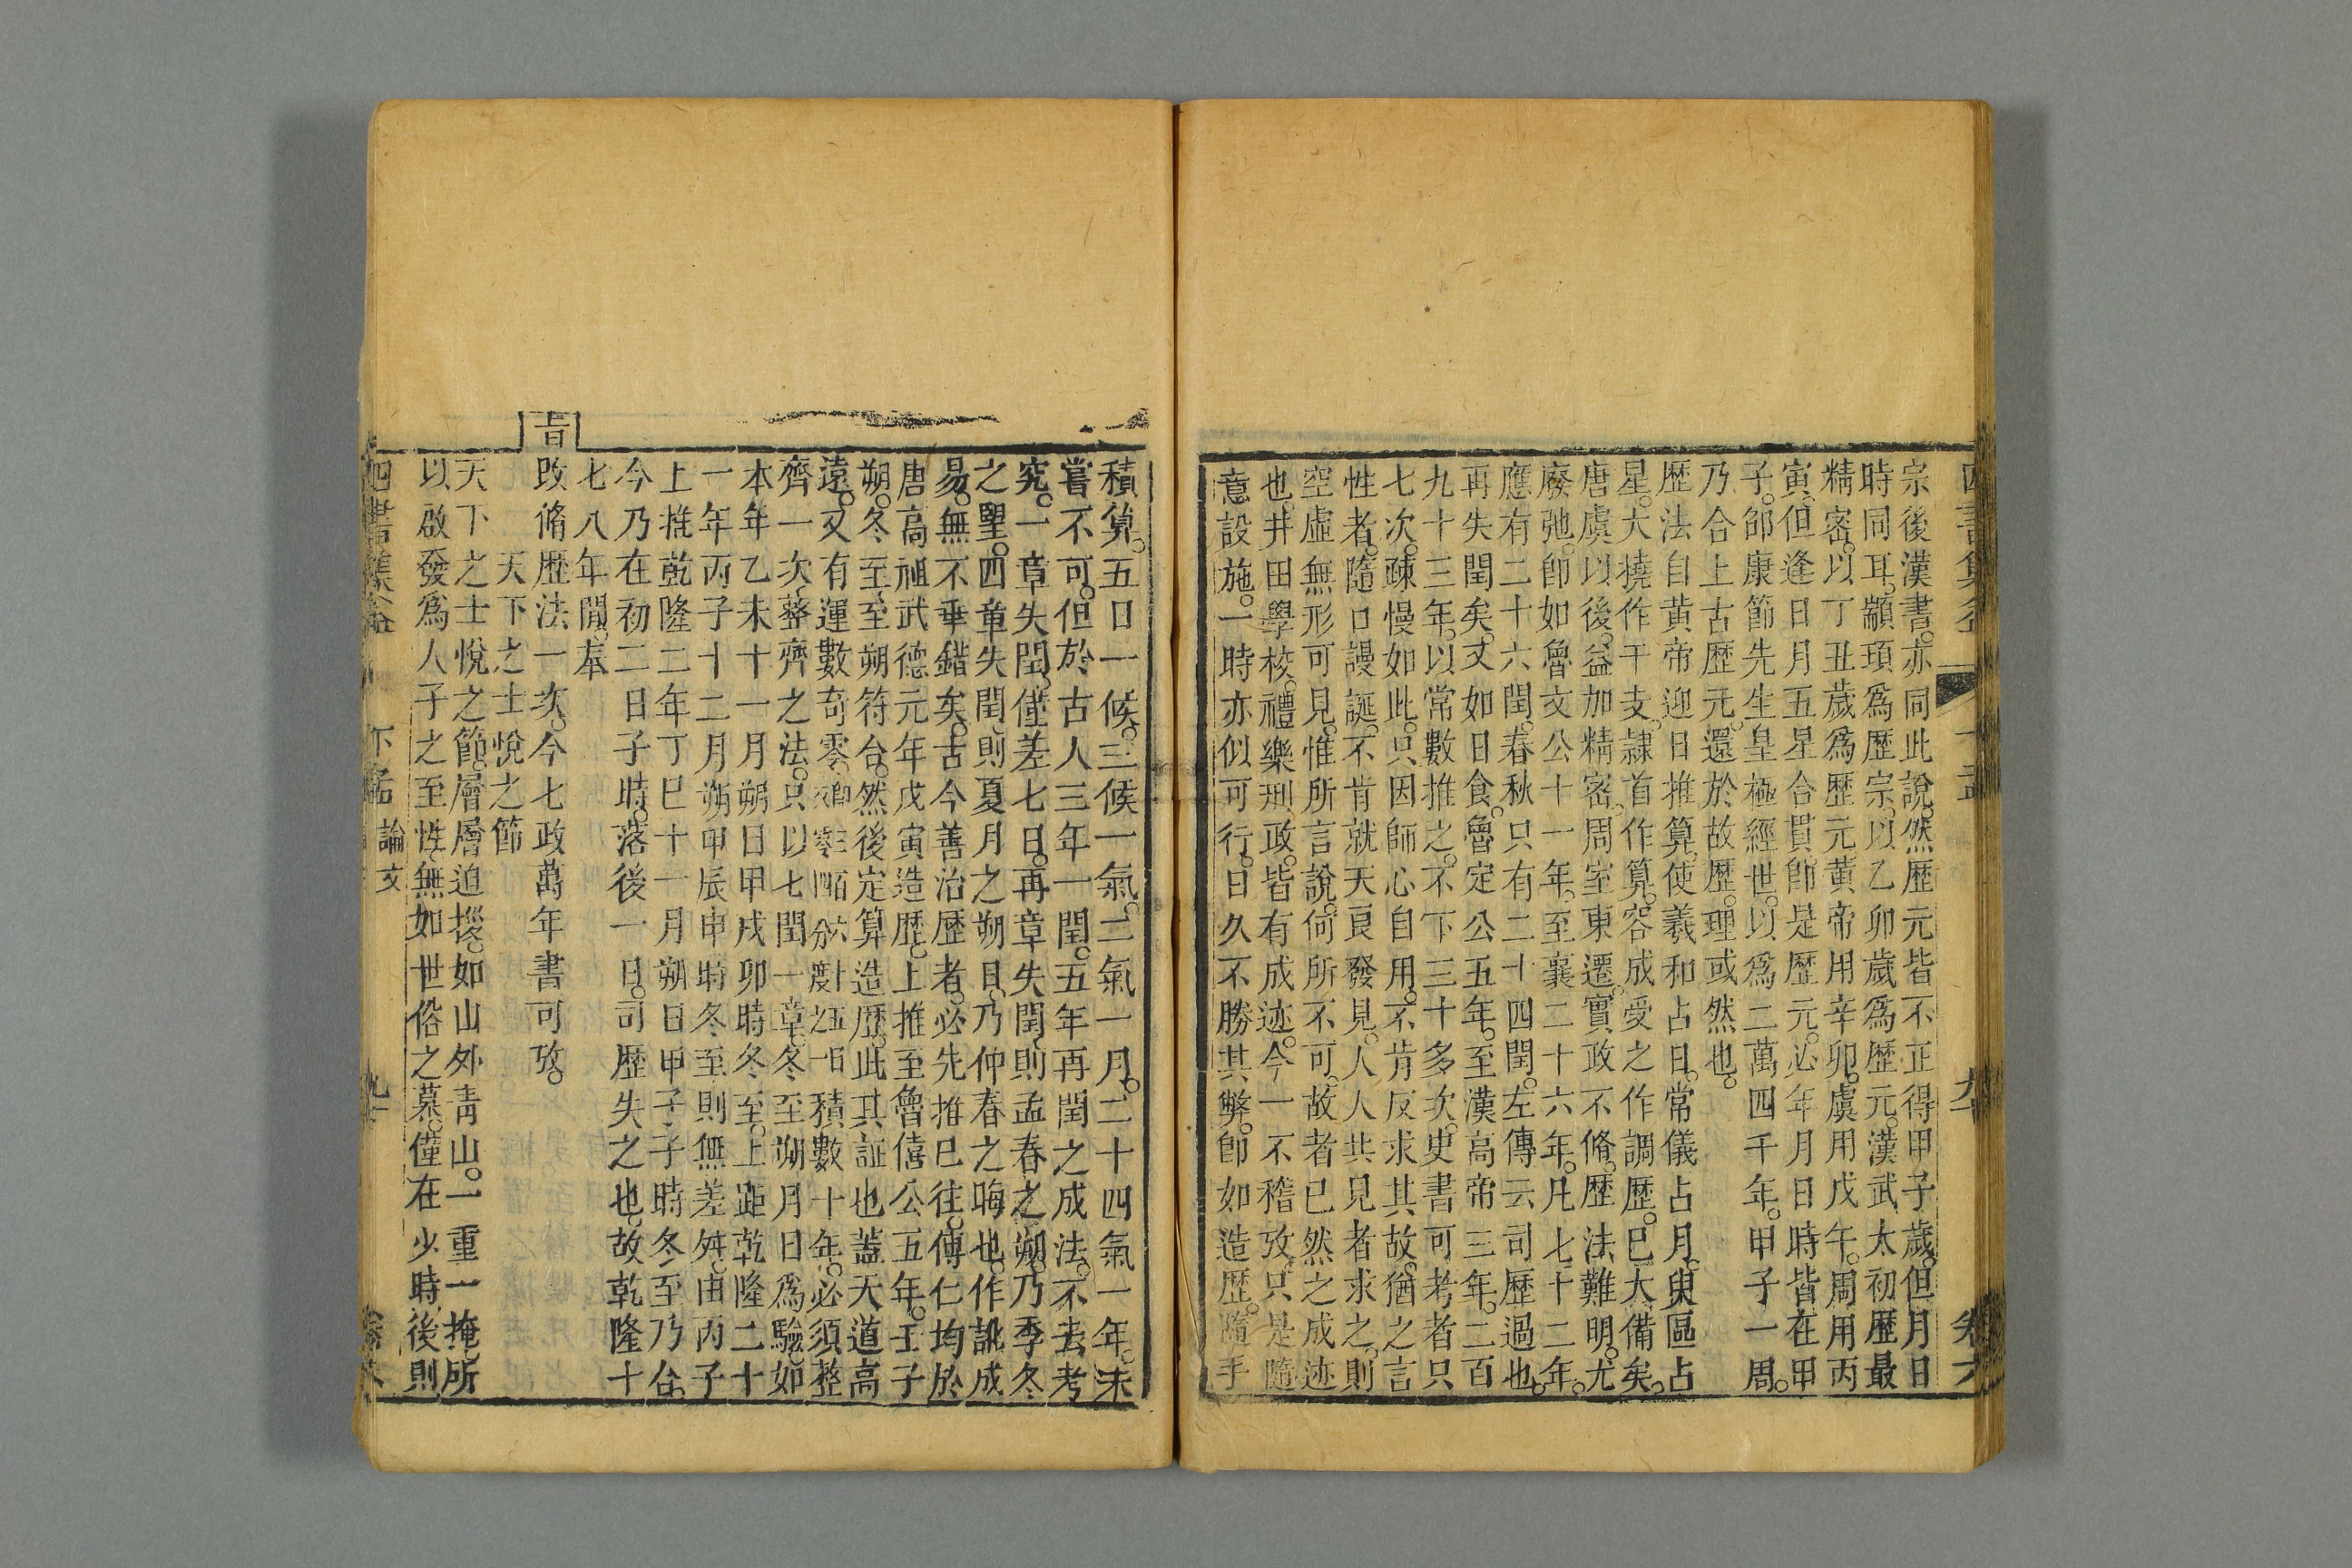 宗後漢書。亦同此說。然歷元皆不正得甲子歲。但月日
時同耳。顓頊為歷宗。以乙卯歲為歷元。漢武太初歷最
精密。以丁丑歲為歷元。黃帝用辛卯。虞用戊午。周用丙
寅。但逢日月五星合貫。卽是歷元。必年月日時皆在甲
子。邵康節先生皇極經世。以為二萬四千年。甲子一周。
乃合上古歷元。還於故歷。理或然也。
歷法自黃帝迎日推算。使羲和占日。常儀占月。臾區占
星。大撓作干支。隸首作算。容成受之作調歷。已大備矣。
唐虞以後。益加精密。周室東遷。實政不脩。歷法難明。尤
廢弛。卽如魯文公十一年。至襄二十六年。凡七十二年。
應有二十六閏。春秋只有二十四閏。左傳云司歷過也。
再失閏矣。又如日食。魯定公五年。至漢高帝三年。二百
九十三年。以常數推之。不下三十多次。史書可考者只
七次。疎慢如此。只因師心自用。不肯反求其故。猶之言
性者。隨口謾誕。不肯就天良發見。人人共見者求之。則
空虛無形可見。惟所言說。何所不可。故者已然之成迹
也。井田學校。禮樂刑政。皆有成迹。今一不稽攷。只是隨
意設施。一時亦似可行。日久不勝其弊。卽如造歷。隨手
積算。五日一候。三候一氣。二氣一月。二十四氣一年。未
嘗不可。但於古人三年一閏。五年再閏之成法。不去考
究。一章失閏。僅差七日。再章失閏。則孟春之朔。乃季冬
之望。四章失閏。則夏月之朔日。乃仲春之晦也。作訛成
易。無不乖錯矣。古今善治歷者。必先推已往。傅仁均於
唐高祖武德元年戊寅造歷。上推至魯僖公五年。壬子
朔。冬至至朔符合。然後定算造歷。此其証也。蓋天道高
遠。又有運數奇零。積數十年。必須整
齊一次。整齊之法。只以七閏一章。冬至朔月日為驗。如
本年乙未十一月朔日甲戌卯時冬至。上距乾隆二十
一年丙子十二月朔甲辰申時冬至則無差舛。由丙子
上推乾隆二年丁巳十一月朔日甲子子時冬至乃合。
今乃在初二日子時。落後一日。司歷失之也。故乾隆十
七八年間。奉
旨
改脩歷法一次。今七政萬年書可攷。
天下之士悅之節
天下之士悅之節。層層迫拶。如山外青山。一重一掩。所
以啟發為人子之至性。無如世俗之慕。僅在少時。後則
四書集
下孟
論文